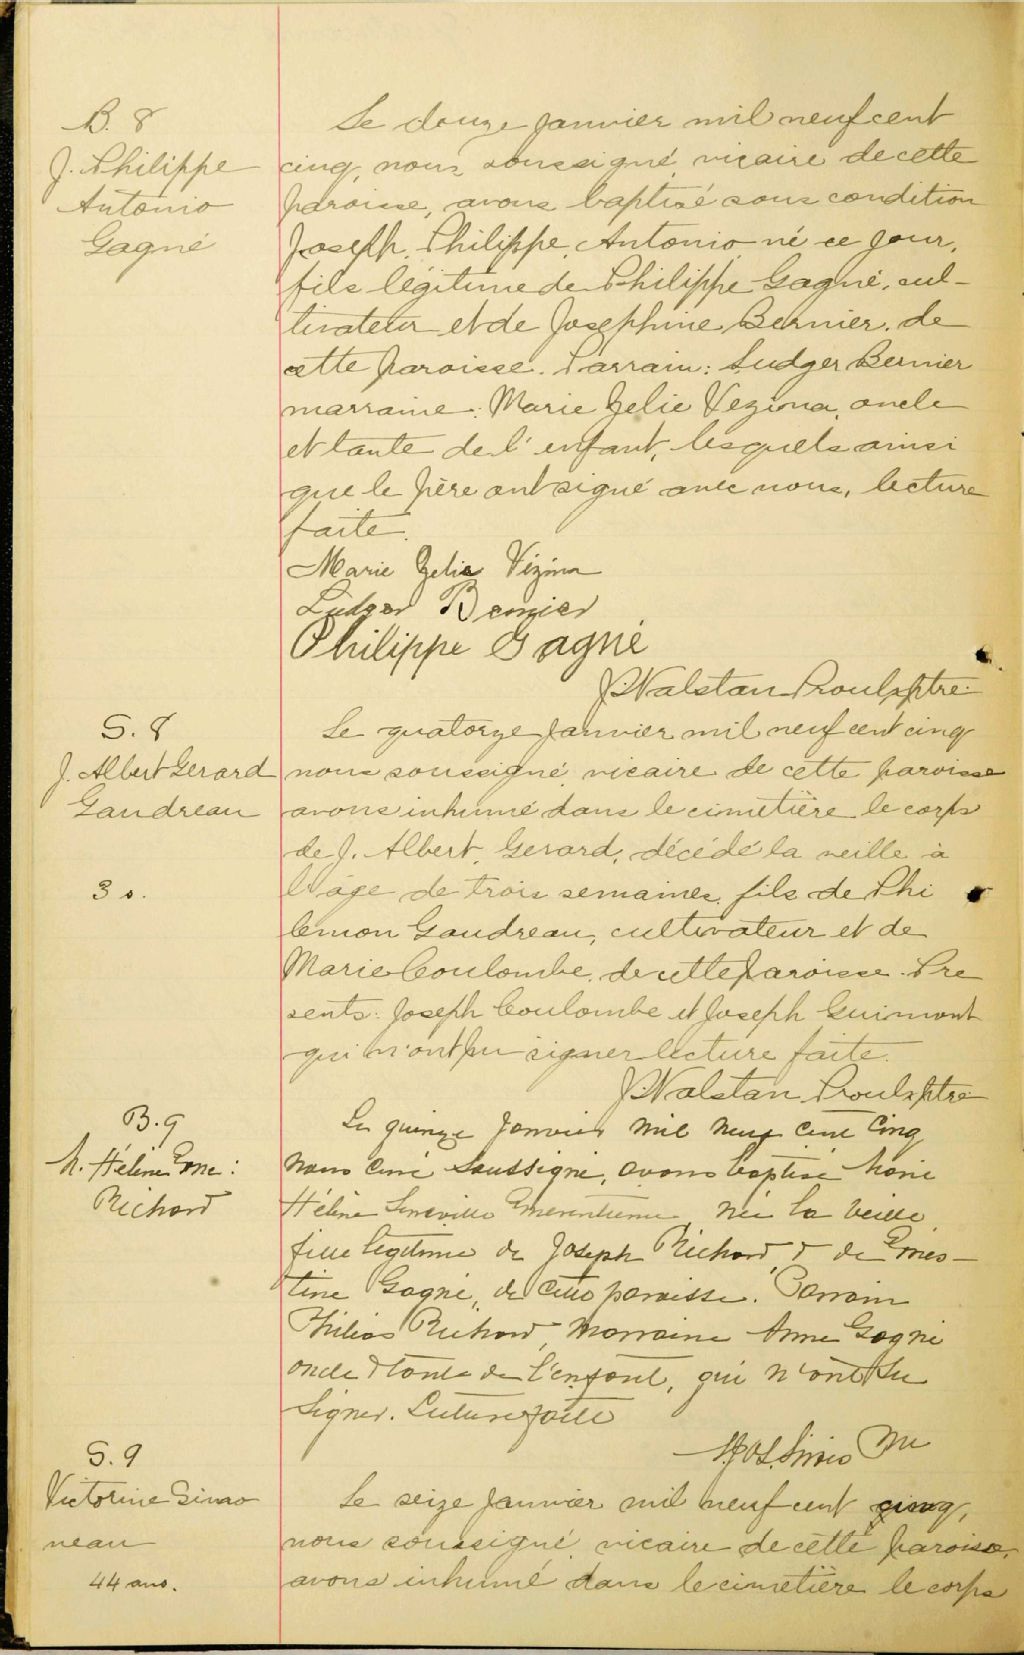 B. 8
J. Philippe
Antonio
Gagné
Le douze janvier mil neuf cent
cinq, nous, soussigné, vicaire de cette
paroisse, avons baptisé sous condition
Joseph, Philippe, Antonio né ce jour,
fils légitime de Philippe Gagné, cul-
tivateur et de Josephine Bernier, de
cette paroisse. Parrain: Ludger Bernier
marraine: Marie Zelie Vezina, oncle
et tante de l'enfant, lesquels ainsi
que le père ont signé avec nous, lecture
faite.
Marie Zelie Vézina
Ludger Bernier
Philippe Gagné
J. Walstan Proulx ptre.
S. 8
J. Albert Gerard
Gaudreau
3 s.
Le quatorze janvier mil neuf cent cinq
nous soussigné vicaire de cette paroisse
avons inhumé dans le cimetière le corps
de J. Albert, Gerard, décédé la veille à
l'âge de trois semaines, fils de Phi
lemon Gaudreau, cultivateur et de
Marie Coulombe, de cette paroisse. Pre
sents: Joseph Coulombe et Joseph Guimont
qui n'ont pu signer lecture faite.
J. Walstan Proulx ptre
B. 9
M. Hélène Eme:
Richard
Le quinze Janvier mil neuf cent cinq
nous curé soussigné, avons baptisé Marie
Hélène Emerentienne, née la veille,
fille légitime de Joseph Richard, & de Ernes-
tine Gagné, de cette paroisse. Parrain
Philias Richard, marraine Anna Gagné
oncle & tante de l'enfant, qui n'ont su
signer. Lecture faite
S. 9
Victorine
neau
44 ans.
Le seize janvier mil neuf cent cinq,
nous soussigné vicaire de cette paroisse,
avons inhumé dans le cimetière le corps